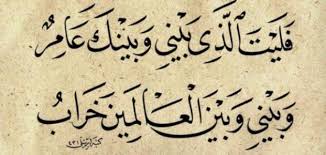 فَلَيْتَ الَّذِي بَيْنِي وَبَيْنَكَ عَامِرُ
وَبَيْنِي وَبَيْنَ الْعَالَمِينَ خَرَابُ